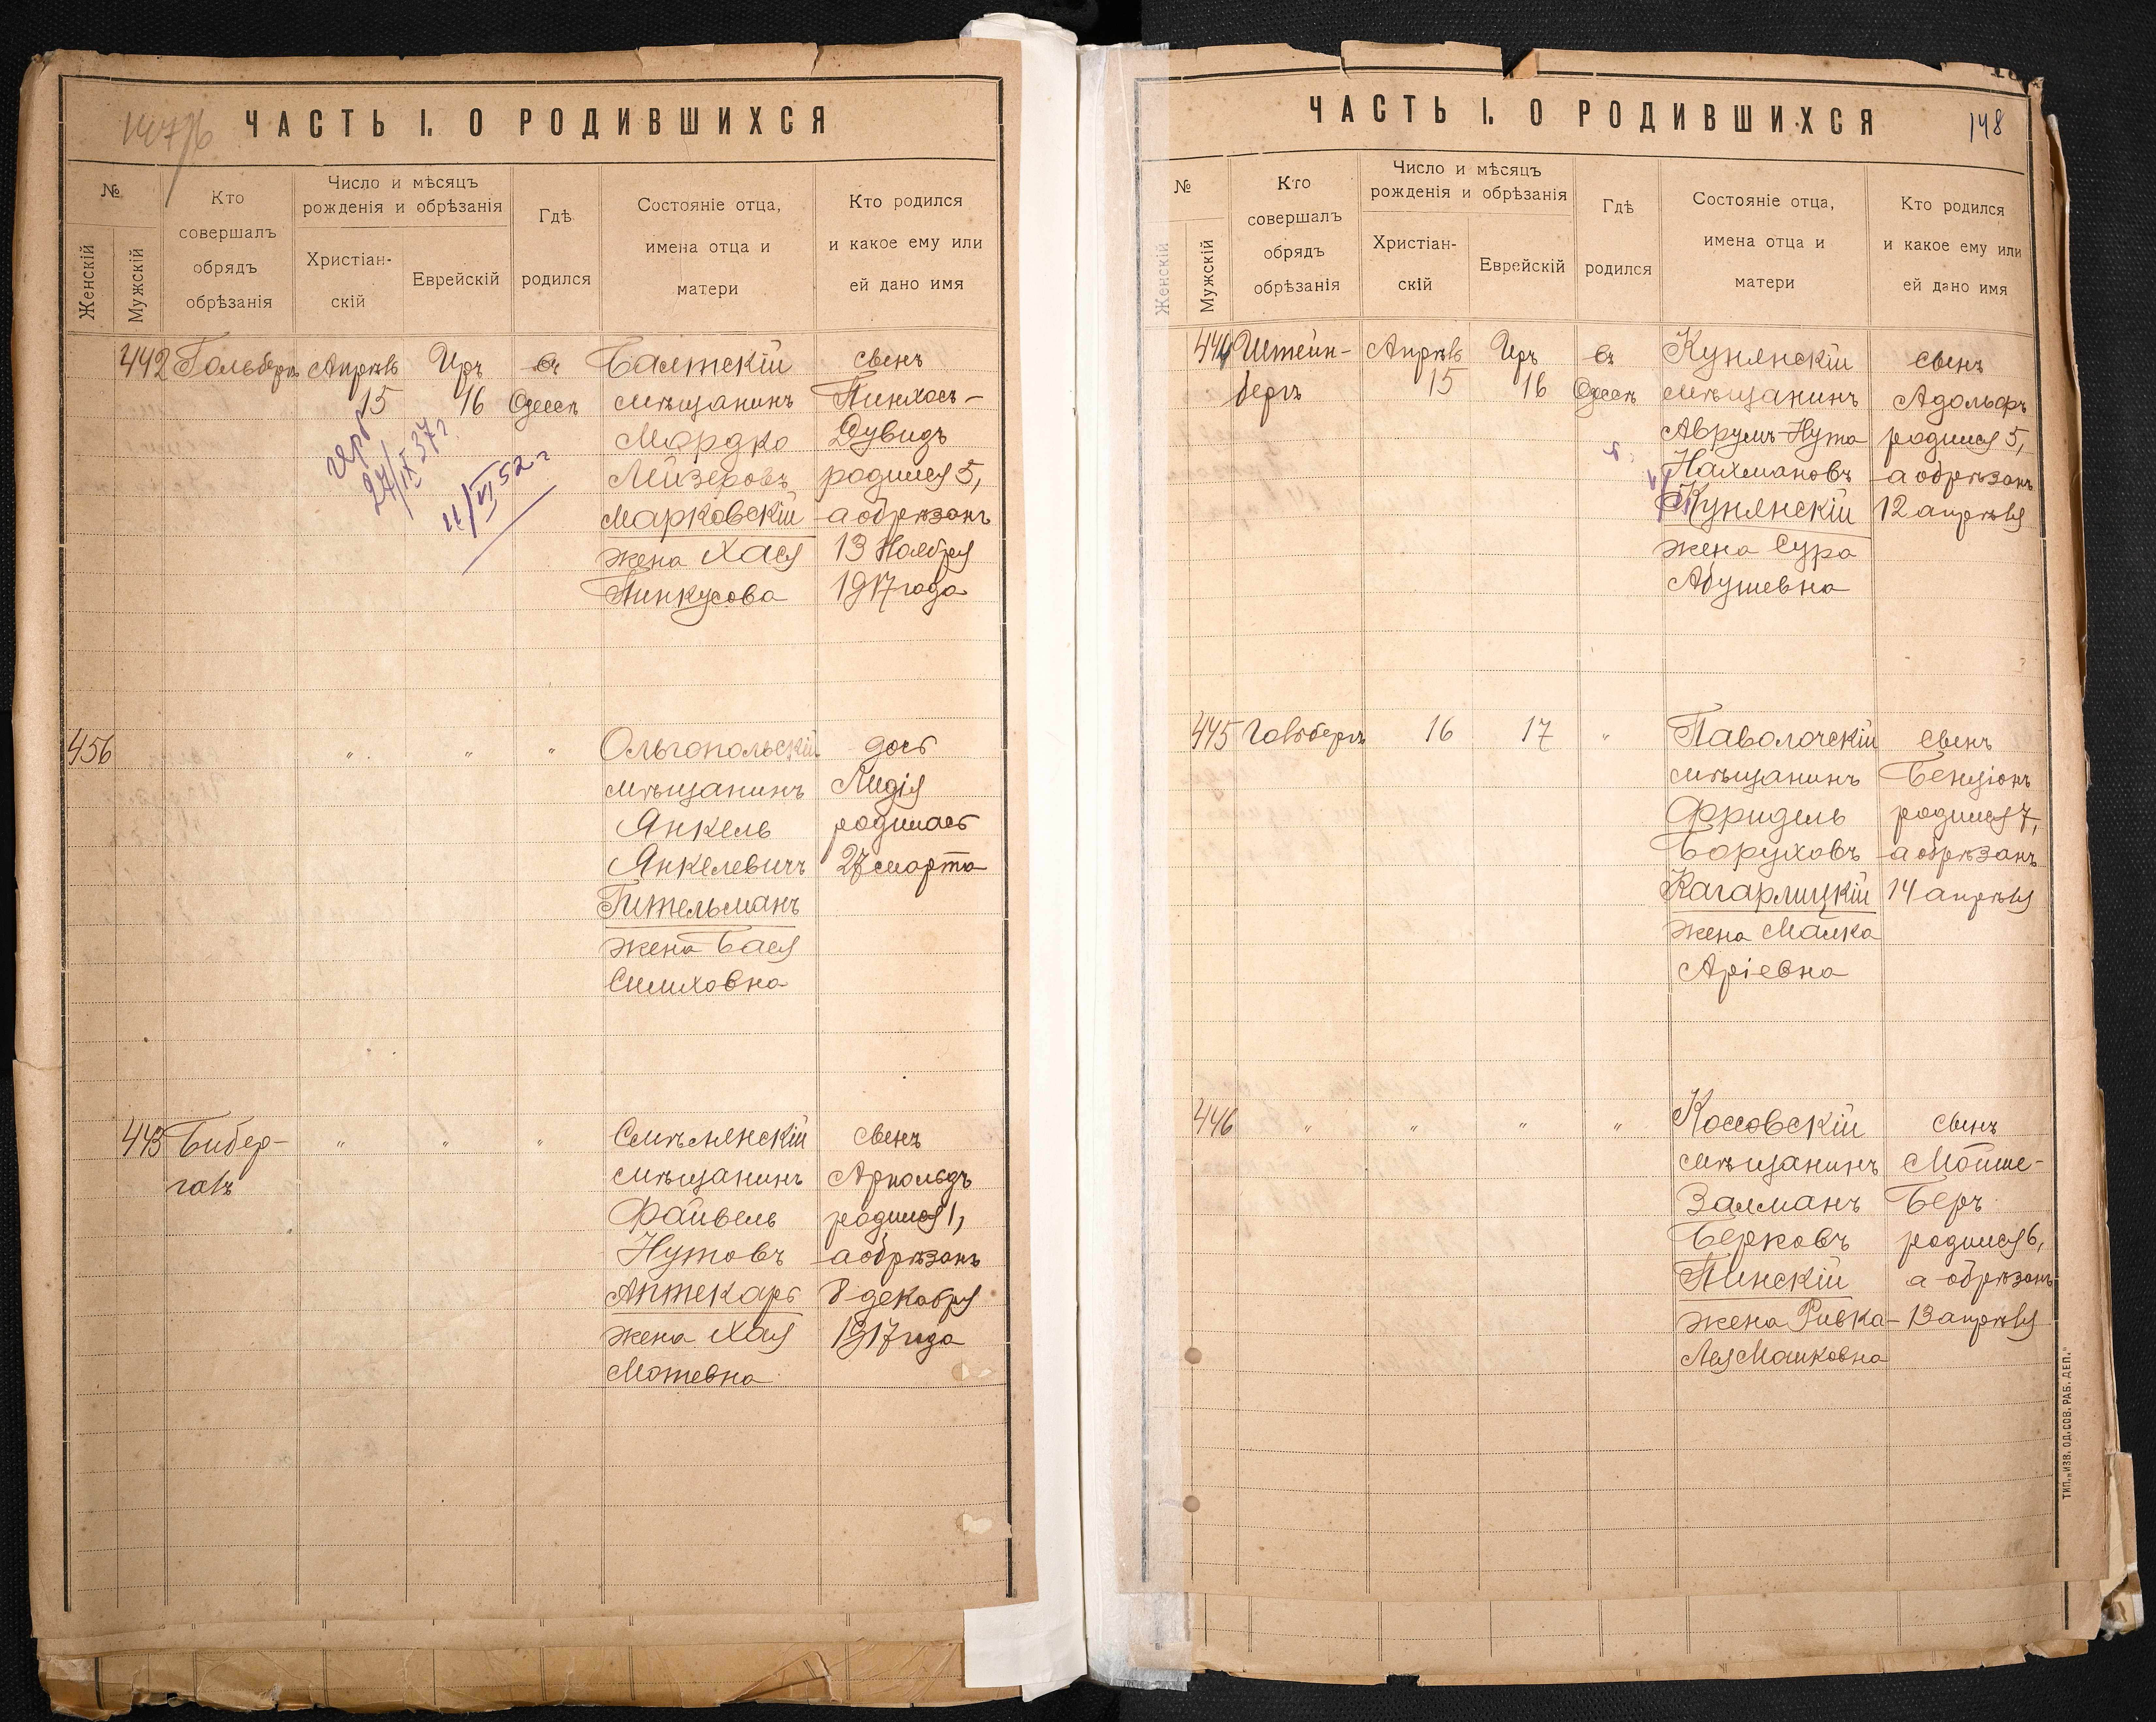 ЧАСТЬ I. О РОДИВШИХСЯ
№
Женскій
Мужскій
Кто
совершалъ
обрядъ
обрѣзанія
Число и мѣсяцъ
рожденія и обрѣзанія
Христіан-
скій
Еврейскій
Гдѣ
родился
Состояніе отца,
имена отца и
матери
Кто родился
и какое ему или
ей дано имя
442
Гольбергъ
Апрѣль
15
Иръ
16
въ
Одессѣ
Балтскій
мѣщанинъ
Мордко
Лейзеровъ
Марковскій
жена Хася
Пинкусова
сынъ
Пинхосъ-
Дувидъ
родился 5,
а обрѣзанъ
13 Ноября
1917 года
герб
27/IX 37 г.
11/VI 52 г
456
" " "
Ольгопольскій
мѣщанинъ
Янкель
Янкелевичъ
Гительманъ
жена Бася
Симховна
дочь
Лидія
родилась
27 марта
443
Бибер-
галь
" " "
Смѣлянскій
мѣщанинъ
Файвель
Нутовъ
Аптекарь
жена Хая
Мотевна
сынъ
Арнольдъ
родился 1,
а обрѣзанъ
8 декабря
1917 года
ЧАСТЬ I. О РОДИВШИХСЯ
148
№
Женскій
Мужскій
Кто
совершалъ
обрядъ
обрѣзанія
Число и мѣсяцъ
рожденія и обрѣзанія
Христіан-
скій
Еврейскій
Гдѣ
родился
Состояніе отца,
имена отца и
матери
Кто родился
и какое ему или
ей дано имя
444
Штейн-
бергъ
Апрѣль
15
Иръ
16
въ
Одессѣ
Кунянскій
мѣщанинъ
Аврумъ-Нута
Нахмановъ
Кунянскій
жена Сура
Абушевна
сынъ
Адольфъ
родился 5,
а обрѣзанъ
12 апрѣля
445
Гольбергъ
16
17
"
Паволочскій
мѣщанинъ
Фридель
Боруховъ
Кагарлицкій
жена Малка
Аріевна
сынъ
Бенціонъ
родился 7,
а обрѣзанъ
14 апрѣля
446
" " " "
Коссовскій
мѣщанинъ
Залманъ
Берковъ
Пинскій
жена Ривка-
Лея Манковна
сынъ
Мойше-
Беръ
родился 6,
а обрѣзанъ
13 апрѣля
ТИП. „ИЗВ. ОД. СОВ. РАБ. ДЕП."